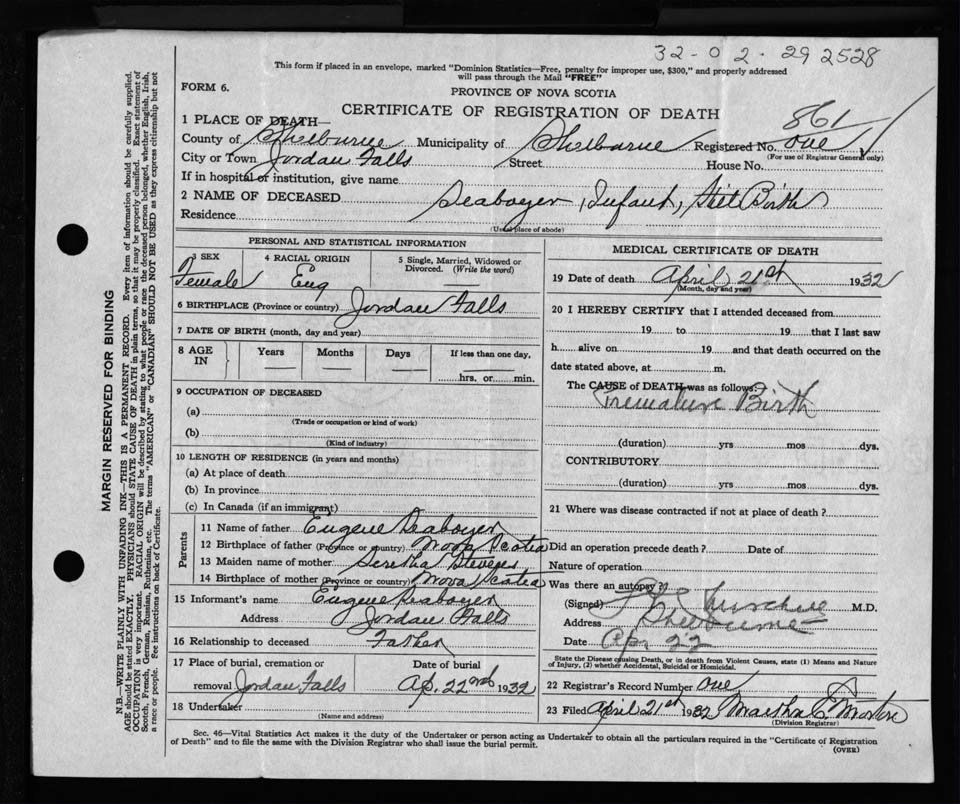 32-02-29 2528
This form if placed in an envelope, marked "Dominion Statistics—Free, penalty for improper use, $300," and properly addressed
will pass through the Mail "FREE"
FORM 6.
PROVINCE OF NOVA SCOTIA
CERTIFICATE OF REGISTRATION OF DEATH
861
1 PLACE OF DEATH—
County of Shelburne Municipality of Shelburne Registered No. one
(For use of Registrar General only)
City or Town Jordan Falls Street House No.
If in hospital or institution, give name
2 NAME OF DECEASED Seaboyer, Infant, Still Birth
Residence
(Usual place of abode)
PERSONAL AND STATISTICAL INFORMATION
3 SEX 4 RACIAL ORIGIN 5 Single, Married, Widowed or
Divorced. (Write the word)
Female Eng
6 BIRTHPLACE (Province or country) Jordan Falls
7 DATE OF BIRTH (month, day and year)
8 AGE IN Years Months Days If less than one day,
hrs. or min.
9 OCCUPATION OF DECEASED
(a)
(Trade or occupation or kind of work)
(b)
(Kind of industry)
10 LENGTH OF RESIDENCE (in years and months)
(a) At place of death
(b) In province
(c) In Canada (if an immigrant)
Parents
11 Name of father Eugene Seaboyer
12 Birthplace of father (Province or country) Nova Scotia
13 Maiden name of mother Seretha
14 Birthplace of mother (Province or country) Nova Scotia
15 Informant's name Eugene Seaboyer
Address Jordan Falls
16 Relationship to deceased Father
17 Place of burial, cremation or Date of burial
removal Jordan Falls Ap. 22nd 1932
18 Undertaker
(Name and address)
MEDICAL CERTIFICATE OF DEATH
19 Date of death April 21st 1932
(Month, day and year)
20 I HEREBY CERTIFY that I attended deceased from
19 to 19 that I last saw
h alive on 19 and that death occurred on the
date stated above, at m.
The CAUSE of DEATH was as follows:
Premature Birth
(duration) yrs mos dys.
CONTRIBUTORY
(duration) yrs mos dys.
21 Where was disease contracted if not at place of death?
Did an operation precede death? Date of
Nature of operation
Was there an autopsy?
(Signed) Churchill M.D.
Address Shelburne
Date Apr 22
State the Disease causing Death, or in death from Violent Causes, state (1) Means and Nature
of Injury, (2) whether Accidental, Suicidal or Homicidal.
22 Registrar's Record Number one
23 Filed April 21st 1932 Martha
(Division Registrar)
Sec. 46—Vital Statistics Act makes it the duty of the Undertaker or person acting as Undertaker to obtain all the particulars required in the "Certificate of Registration
of Death" and to file the same with the Division Registrar who shall issue the burial permit.
(OVER)
MARGIN RESERVED FOR BINDING
N.B.—WRITE PLAINLY WITH UNFADING INK—THIS IS A PERMANENT RECORD. Every item of information should be carefully supplied.
AGE should be stated EXACTLY. PHYSICIANS should STATE CAUSE OF DEATH in plain terms, so that it may be properly classified. Exact statement of
OCCUPATION is very important. RACIAL ORIGIN will be described by stating to what people or race the deceased person belonged, whether English, Irish,
Scotch, French, German, Russian, Ruthenian, etc. The terms "AMERICAN" or "CANADIAN" SHOULD NOT BE USED as they express citizenship but not
a race or people. See instructions on back of Certificate.